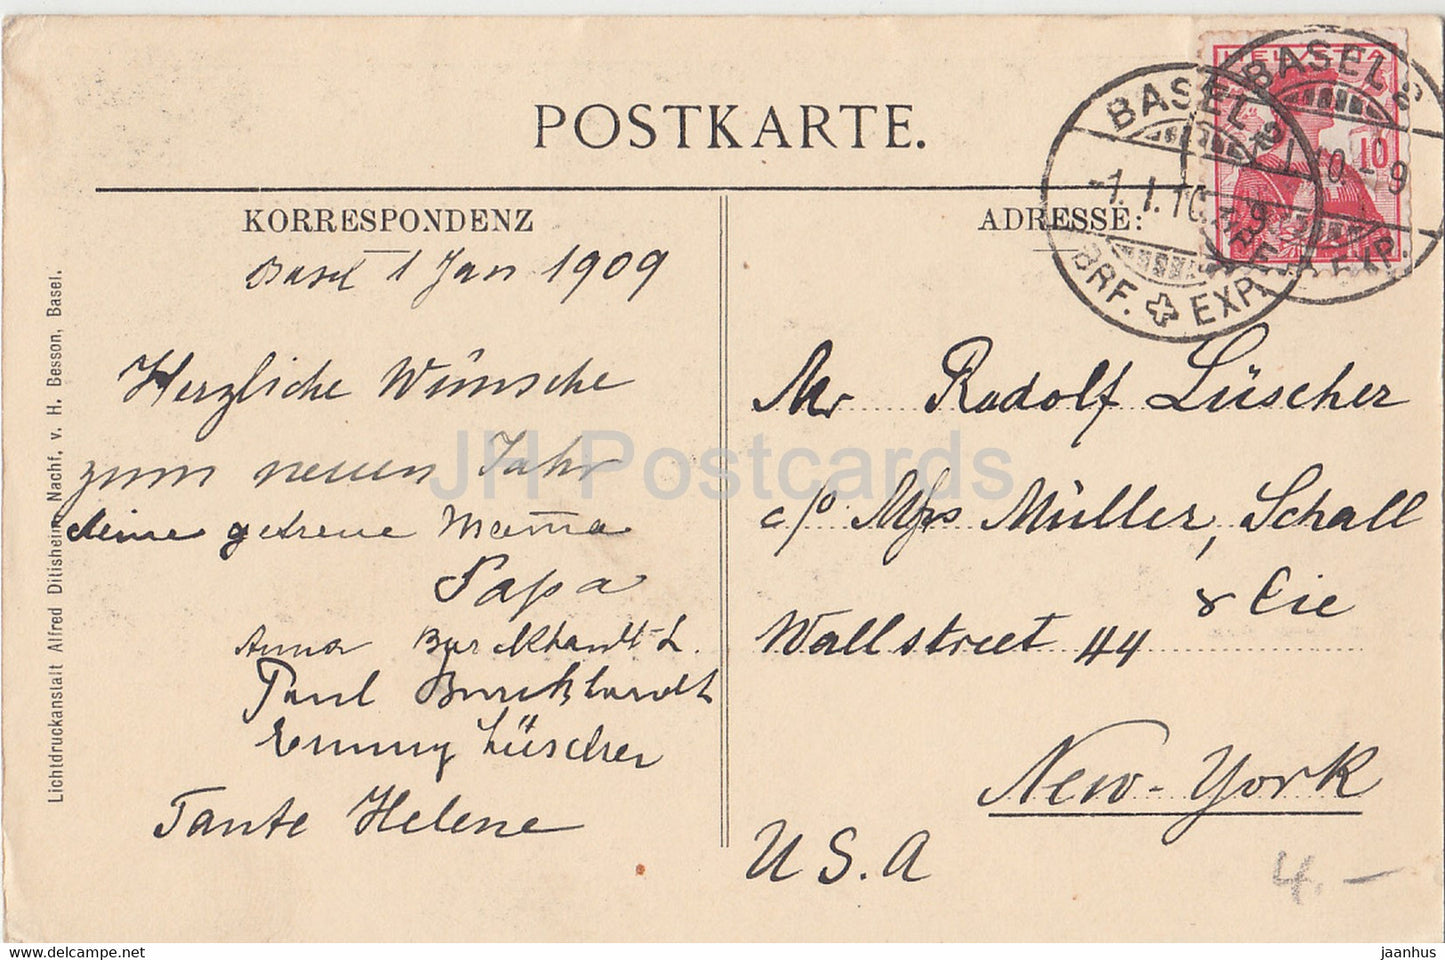 POSTKARTE.
KORRESPONDENZ
Basel 1 Jan 1909
Herzliche Wünsche
zum neuen Jahr
deine getreue Mama
Papa
Anna Burckhardt-L.
Paul Burckhardt
Emmy Lüscher
Tante Helene
Lichtdruckanstalt Alfred Ditisheim, Nachf. v. H. Besson, Basel.
ADRESSE:
HELVETIA
10
BASEL 2
-1.I.10.-9
BRF. EXP.
BASEL 2
I.10.-9
BRF. EXP.
Mr Rudolf Lüscher
c/o Müller, Schall
& Cie
Wallstreet 44
New-York
U.S.A
4.-
JH Postcards
www.hippostcard.com
jaanhus